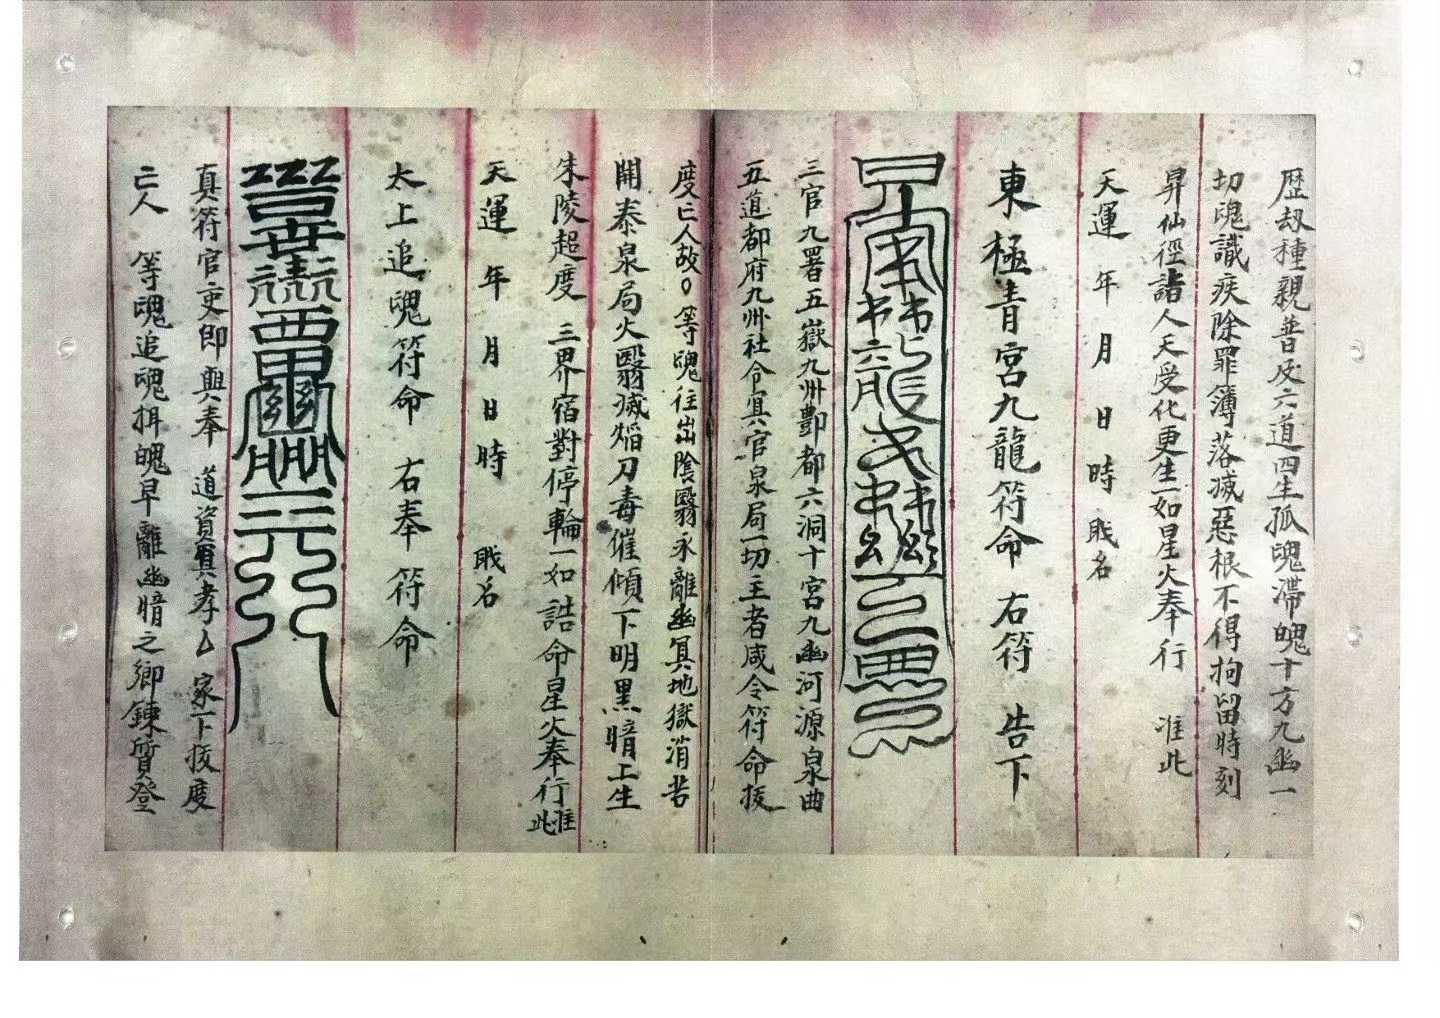 歷刼種親普及六道四生孤魂滯魄十方九幽一
切魂識疾除罪簿落滅惡根不得拘留時刻
昇仙徑詣人天受化更生一如星火奉行 准此
天運 年 月 日 時 戝名
東極青宮九龍符命 右符 告下
三官九署五嶽九州酆都六洞十宮九幽河源泉曲
五道都府九州社令冥官泉局一切主者咸令符命拔
度亡人故〇等魂往出陰翳永離幽冥地獄消苦
開泰泉局火翳滅熖刀毒催傾下明黑暗上生
朱陵超度 三界宿對停輪一如誥命星火奉行准此
天運 年 月 日 時 戝名
太上追魂符命 右奉 符命
真符官吏即與奉 道資冥孝厶 家下拔度
亡人 等魂追魂拘魄早離幽暗之鄉鍊質登